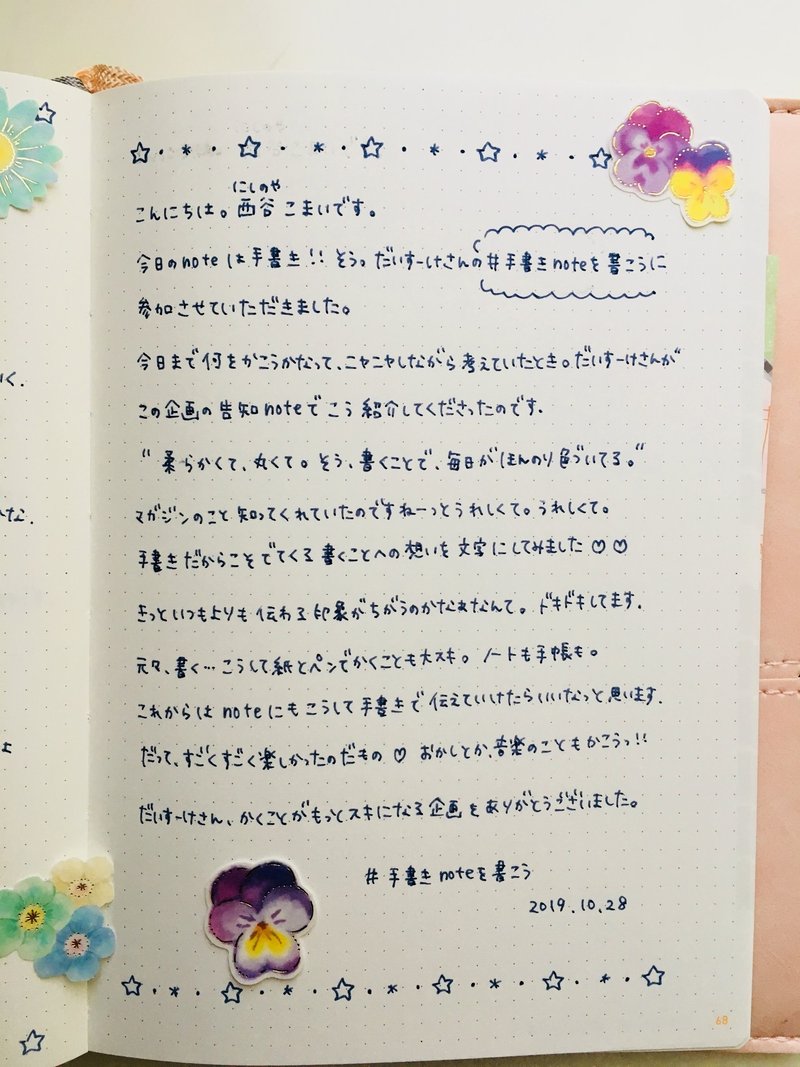 にしのや
こんにちは。西谷こまいです。
今日のnoteは手書き!! そう。だいすーけさんの#手書きnoteを書こうに
参加させていただきました。
今日まで何をかこうかなって、ニヤニヤしながら考えていたとき。だいすーけさんが
この企画の告知noteでこう紹介してくださったのです.
"柔らかくて、丸くて。そう、書くことで、毎日がほんのり色づいてる。"
マガジンのこと知ってくれていたのですねーっとうれしくて。うれしくて。
手書きだからこそでてくる書くことへの想いを文字にしてみました♡♡
きっといつもよりも伝わる印象がちがうのかなぁなんて。ドキドキしてます.
元々、書く…こうして紙とペンでかくことも大スキ。ノートも手帳も。
これからはnoteにもこうして手書きで伝えていけたらいいなっと思います.
だって、すごくすごく楽しかったのだもの♡ おかしとか、音楽のこともかこうっ!!
だいすーけさん、かくことがもっとスキになる企画をありがとうございました。
#手書きnoteを書こう
2019.10.28
68